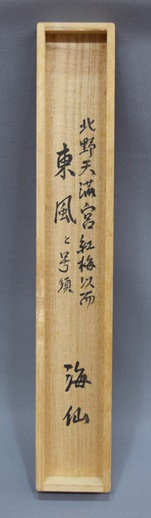 北野天満宮紅梅以而
東風と号須
海仙